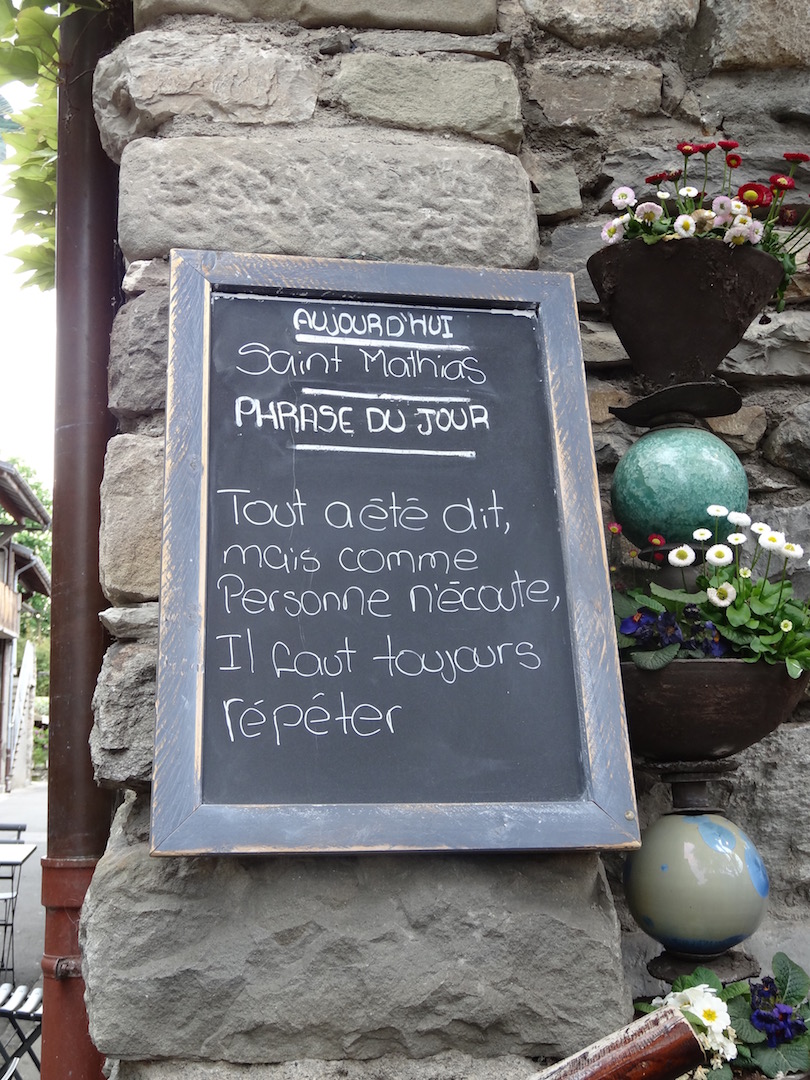 AUJOURD'HUI
Saint Mathias
PHRASE DU JOUR
Tout a été dit,
mais comme
Personne n'écoute,
Il faut toujours
répéter